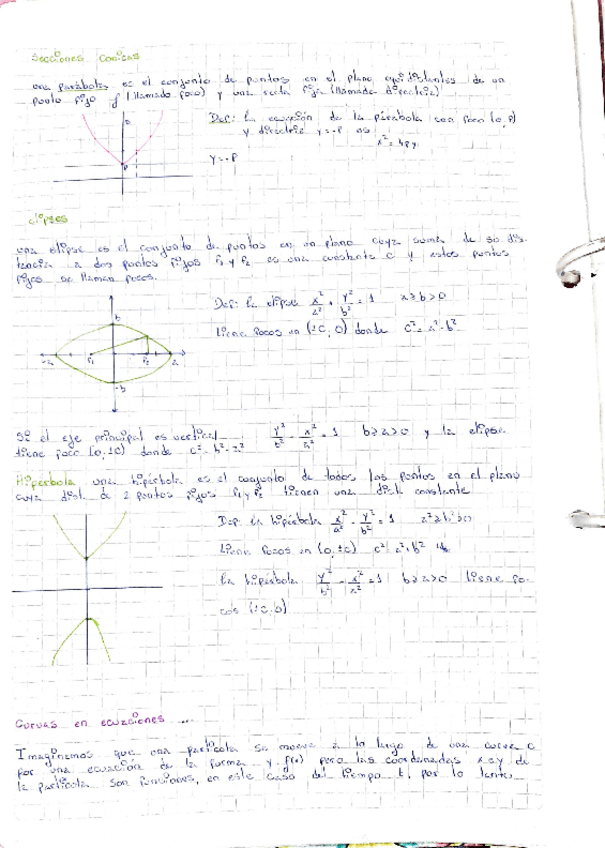 Secciones Conicas
una parábola es el conjunto de puntos en el plano equidistantes de un
punto fijo f (llamado foco) y una recta fija (llamada directriz)
Def: la ecuación de la párabola con foco (0,P)
y directriz y=-P es
x²=4py
y=-P
elipses
una elipse es el conjunto de puntos en un plano cuya suma de su dis-
tancia a dos puntos fijos F₁ y F₂ es una constante C y estos puntos
fijos se llaman focos.
Def: la elipse x²/a² + y²/b² = 1 a≥b>0
tiene focos en (±C, 0) donde c²=a²-b²
b
-a F₁ F₂ a
-b
Si el eje principal es vertical y²/b² - x²/a² = 1 b≥a>0 y la elipse
tiene foco (0,±C) donde c²=b²-a²
Hipérbola una hipérbola es el conjunto de todos los puntos en el plano
cuya dist. de 2 puntos fijos F₁ y F₂ tienen una dist. constante
Def. la hipérbola x²/a² - y²/b² = 1
tiene focos en (0,±C) c²=a²+b²
la hipérbola y²/b² - x²/a² = 1 b≥a>0 tiene fo-
cos (±C,0)
Curvas en ecuaciones ...
Imaginemos que una partícula se mueve a lo largo de una curva C
por una ecuación de la forma y=f(x) pero las coordenadas x e y de
la partícula son funciones, en este caso del tiempo t, por lo tanto